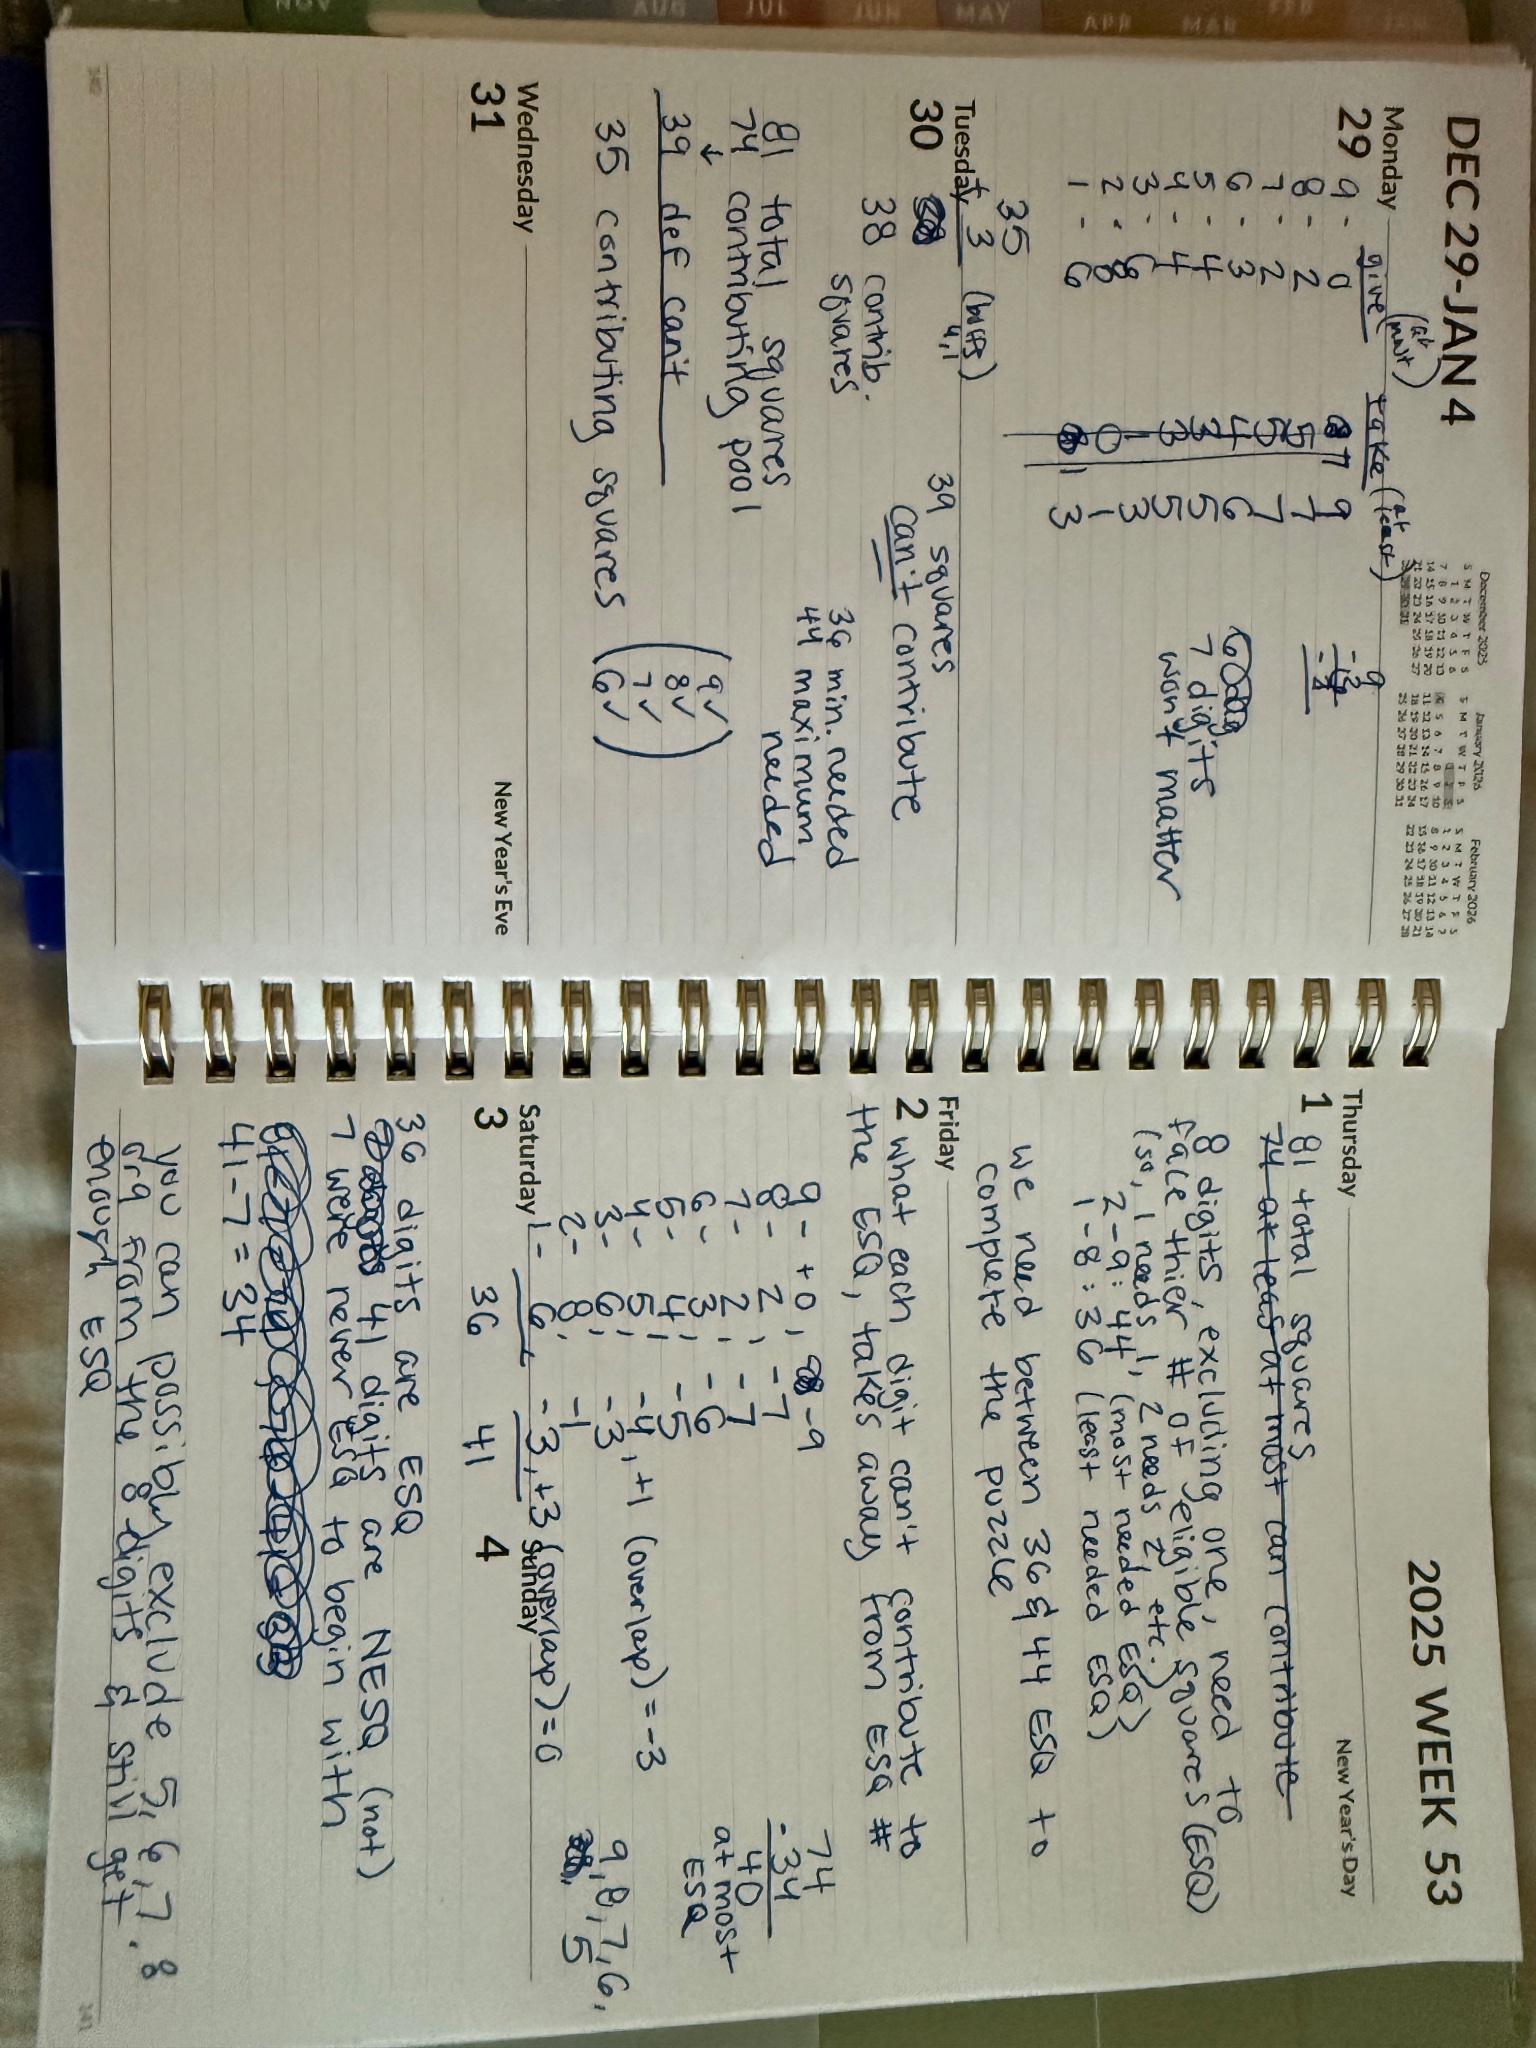 DEC 29-JAN 4
December 2025
January 2026
February 2026
Monday
29
give (at most)
take (at least)
9 - 0 9
8 - 2 7
7 - 2 7
6 - 3 6
5 - 4 5
4 - 4 5
3 - 6 3
2 - 8 1
1 - 6 3
7 digits
won't matter
35
+ 3 (buffs)
4,1
Tuesday
30
38 contrib.
squares
39 squares
can't contribute
36 min. needed
44 maximum
needed
81 total squares
74 contributing pool
↓
39 def can't
35 contributing squares
(9✓
8✓
7✓
6✓)
Wednesday
31
New Year's Eve
340
2025 WEEK 53
Thursday
1
New Year's Day
81 total squares
74 at least at most can contribute
8 digits, excluding one, need to
face thier # of eligible squares (ESQ)
(so, 1 needs 1, 2 needs 2, etc.)
2-9: 44 (most needed ESQ)
1-8: 36 (least needed ESQ)
we need between 36 & 44 ESQ to
complete the puzzle
Friday
2
what each digit can't contribute to
the ESQ, takes away from ESQ #
9 - +0, -9
8 - 2, -7
7 - 2, -7
6 - 3 -6
5 - 4, -5
4 - 5, -4, +1 (overlap) = -3
3 - 6, -3
2 - 8, -1
1 - 6 -3, +3 (overlap) = 0
36 41
74
-34
40
at most
ESQ
9, 8, 7, 6,
5
Saturday
3
Sunday
4
36 digits are ESQ
41 digits are NESQ (not)
7 were never ESQ to begin with
41-7=34
you can possibly exclude 5, 6, 7, 8
or 9 from the 8 digits & still get
enough ESQ
341
NOV
AUG
JUL
JUN
MAY
APR
MAR
FEB
JAN